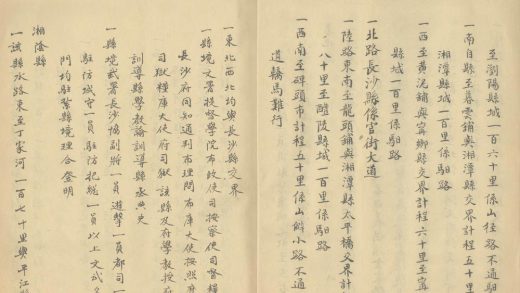 至瀏陽縣城一百六十里係山徑路不通馹
一南自縣至暮雲鋪與湘潭縣交界計程五十里
湘潭縣城一百里係馹路
一西至黄泥鋪與寧鄉縣交界計程六十里至寧
縣城一百里係馹路
一北路長沙縣係官街大道
一陸路東南至龍頭鋪與湘潭縣太平橋交界計
八十里至醴陵縣城一百里係馹路
一西南至碑頭市計程五十里係山僻小路不通
道轎馬難行
一東北西北均與長沙縣交界
一縣境文署提督學院布政使司按察使司督糧
長沙府同知通判布理問布庫大使按照
司獄糧庫大使府司獄該縣及府學教授府
訓導縣學教諭訓導縣丞典史
一縣境武署長沙協副將一員遊擊一員都司一
駐防城守一員駐防把總一員以上文武
門均駐紮縣境理合登明
湘陰縣
一該縣水路東至丁家河一百七十里與平江縣